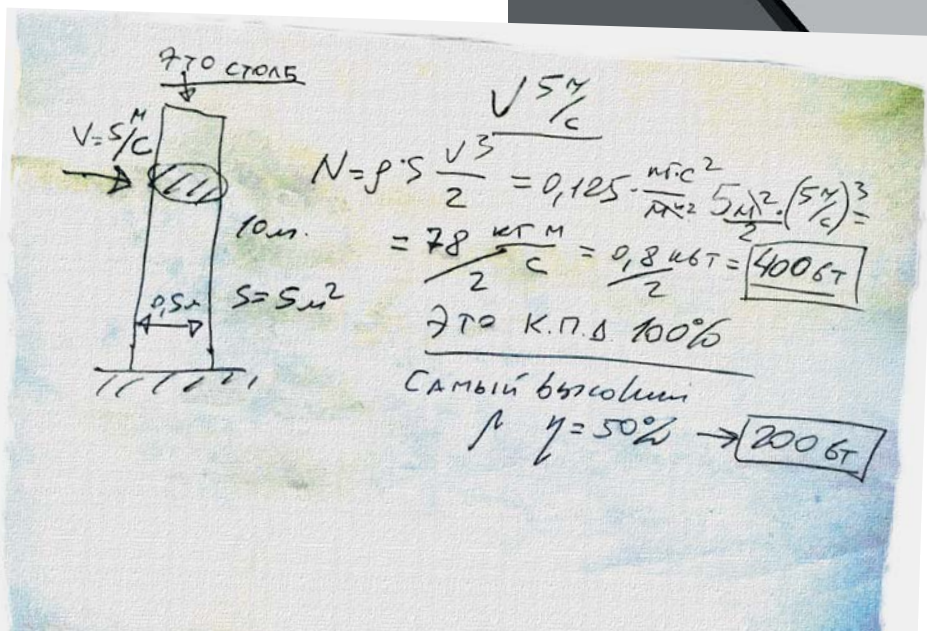 это столб
V=5 м/с
10 м.
0,5м
S=5м²
V 5 м/с
N=ρ·S V³/2 = 0,125 · кг·с²/м⁴ 5м²/2 · (5 м/с)³ =
= 78/2 кг м/с = 0,8/2 квт = 400 вт
это К.П.Д. 100%
Самый высокий
η=50% → 200 вт